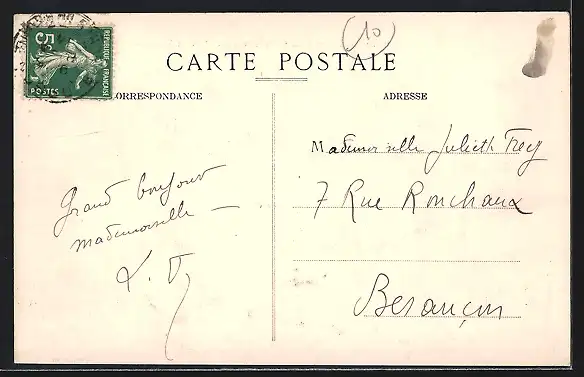 10
CARTE POSTALE
5
REPUBLIQUE FRANÇAISE
POSTES
CORRESPONDANCE
ADRESSE
Grand bonjour
mademoiselle —
L. V
Mademoiselle Juliette Frey
7 Rue Ronchaux
Besançon